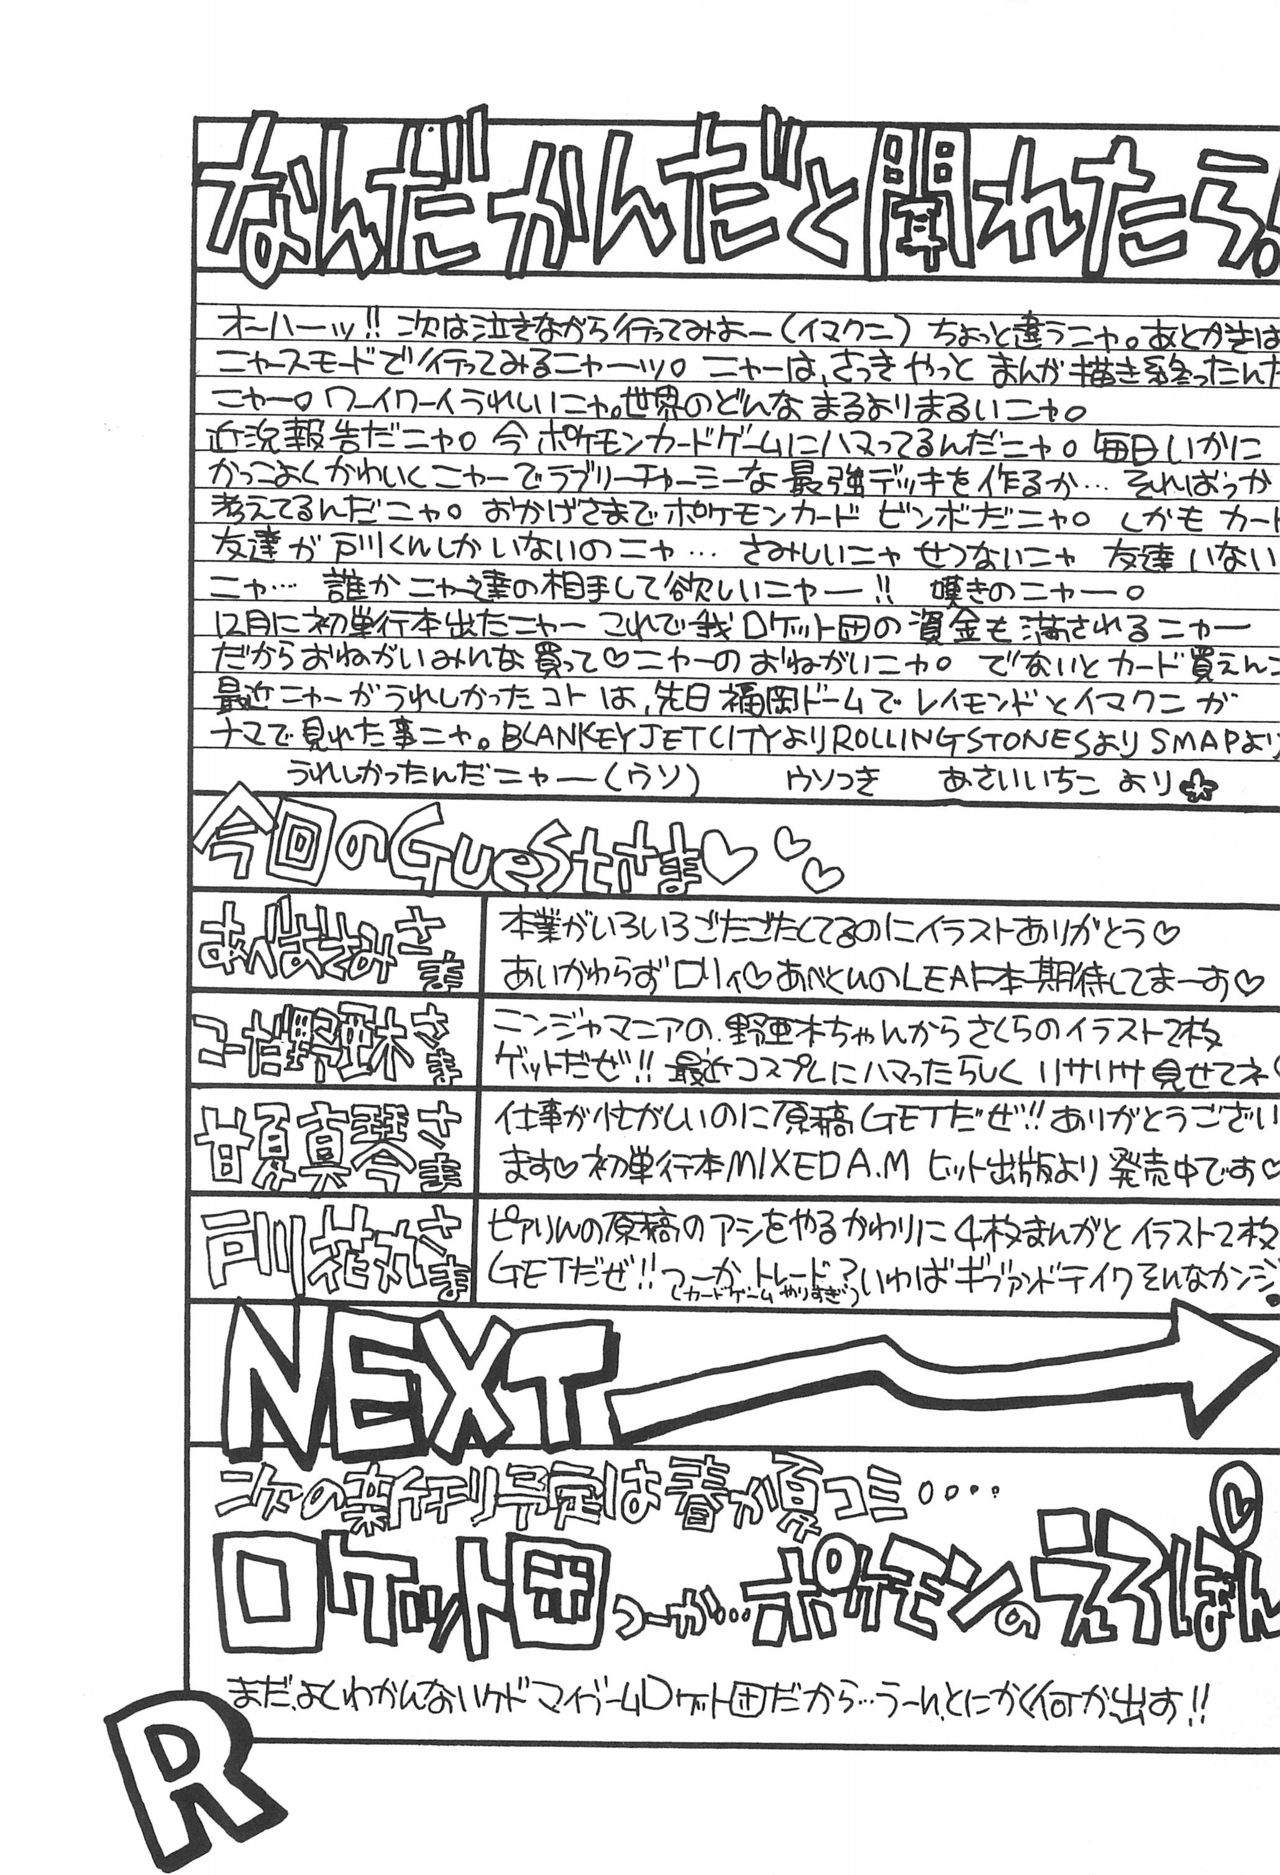 なんだかんだと聞れたら!
オーハーッ!! 次は泣きながら行ってみよー(イマクニ) ちょっと違うニャ。あとがきは
ニャースモードで行ってみるニャーッ。ニャーは、さっき やっと まんが 描き終ったんだ
ニャー。ワーイワーイうれしいニャ。世界のどんな まるよりまるいニャ。
近況報告だニャ。今 ポケモンカードゲームにハマってるんだニャ。毎日いかに
かっこよくかわいくニャーでラブリーチャーミーな 最強デッキを作るか… そればっか
考えてるんだニャ。おかげさまでポケモンカード ビンボだニャ。しかも カード
友達が戸川くんしかいないのニャ… さみしいニャ せつないニャ 友達いない
ニャ… 誰か ニャー達の相手して欲しいニャー!! 嘆きのニャー。
12月に初単行本出たニャー これで我ロケット団の資金も満されるニャー
だからおねがいみんな買って♡ニャーのおねがいニャ。でないとカード買えん
最近ニャーがうれしかったコトは、先日 福岡ドームでレイモンドとイマクニが
ナマで見れた事ニャ。BLANKEY JET CITYよりROLLING STONESより SMAPより
うれしかったんだニャー(ウソ) ウソつき あさいいちこ より☆
今回のGuestさま♡♡♡
さま
本業がいろいろごたごたしてるのにイラストありがとう♡
あいかわらずロリィ♡あべとひのLEAF本期待してまーす♡
こーだ野亜木さま
ニンジャマニアの野亜木ちゃんからさくらのイラスト2枚
ゲットだぜ!! 最近コスプレにハマったらしく リサリサ見せてネ♡
甘夏真琴さま
仕事が忙がしいのに原稿GETだぜ!! ありがとうござい
ます♡初単行本MIXED A.M ヒット出版より 発売中です♡
戸川花丸さま
ピありんの原稿のアシをやるかわりに 4枚まんがと イラスト2枚
GETだぜ!! つーか トレード?いわばギブアンドテイクそんなカンジ
(カードゲームやりすぎ)
NEXT
次の新刊予定は春か夏コミ....
ロケット団つーか…ポケモンのえろほん
まだ、よくわかんないケドマイブームロケット団だから…うーん、とにかく何か、出す!!
R